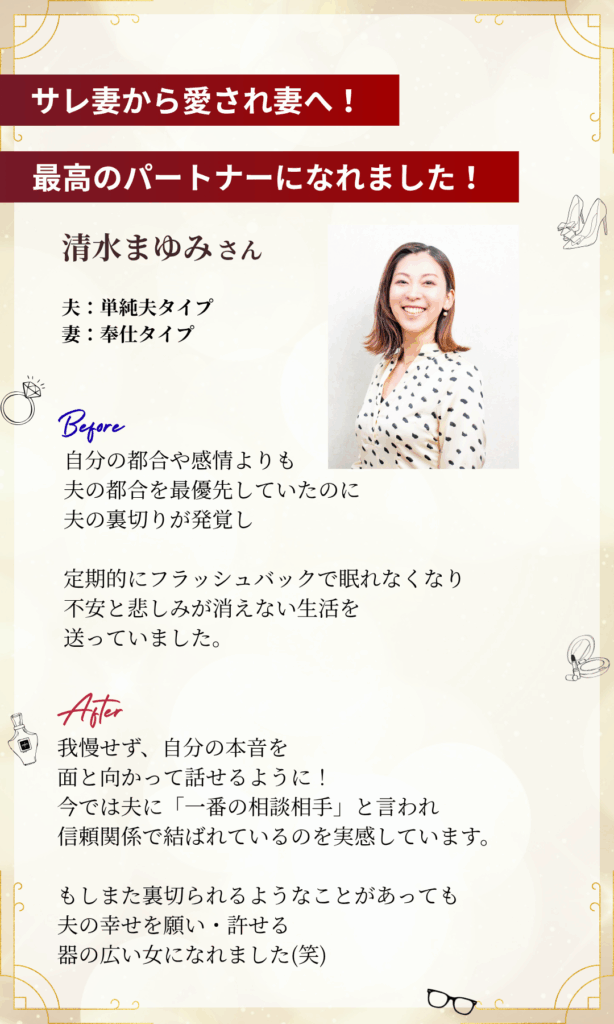 サレ妻から愛され妻へ！
最高のパートナーになれました！
清水まゆみさん
夫：単純夫タイプ
妻：奉仕タイプ
Before
自分の都合や感情よりも
夫の都合を最優先していたのに
夫の裏切りが発覚し
定期的にフラッシュバックで眠れなくなり
不安と悲しみが消えない生活を
送っていました。
After
我慢せず、自分の本音を
面と向かって話せるように！
今では夫に「一番の相談相手」と言われ
信頼関係で結ばれているのを実感しています。
もしまた裏切られるようなことがあっても
夫の幸せを願い・許せる
器の広い女になれました(笑)